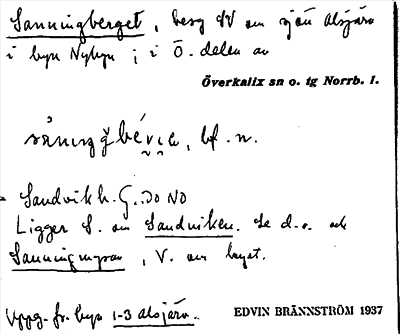 Sanningberget, berg SV om sjön Alsjärv
i byn Nybyn; i Ö. delen av
Överkalix sn o. tg Norrb. l.
bf. n.
Sandvikh. G. DO NO
Ligger S. om Sandviken. Se d. o. och
Sanningmyran, V. om berget.
Uppg. fr. byn 1-3 Alsjärv.
EDVIN BRÄNNSTRÖM 1937